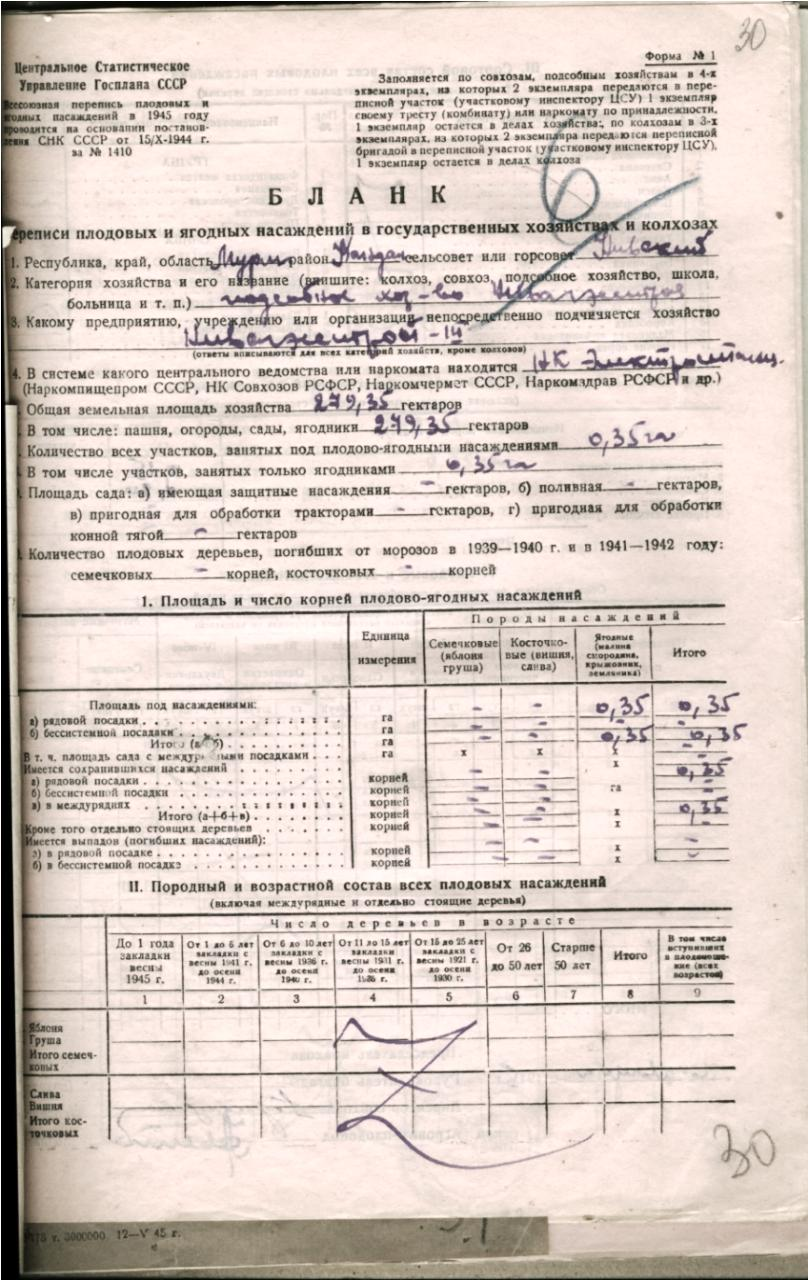 30
Форма № 1
Центральное Статистическое
Управление Госплана СССР
Всесоюзная перепись плодовых и
ягодных насаждений в 1945 году
проводится на основании постанов-
ления СНК СССР от 15/X-1944 г.
за № 1410
Заполняется по совхозам, подсобным хозяйствам в 4-х
экземплярах, из которых 2 экземпляра передаются в пере-
писной участок (участковому инспектору ЦСУ) 1 экземпляр
своему тресту (комбинату) или наркомату по принадлежности,
1 экземпляр остается в делах хозяйства; по колхозам в 3-х
экземплярах, из которых 2 экземпляра передаются переписной
бригадой в переписной участок (участковому инспектору ЦСУ),
1 экземпляр остается в делах колхоза
6
БЛАНК
переписи плодовых и ягодных насаждений в государственных хозяйствах и колхозах
1. Республика, край, область Мурм район Кандал сельсовет или горсовет Нивский
2. Категория хозяйства и его название (впишите: колхоз, совхоз, подсобное хозяйство, школа,
больница и т. п.) подсобное хоз-во Нивагэсстроя
3. Какому предприятию, учреждению или организации непосредственно подчиняется хозяйство
Нивагэсстрой-III
(ответы вписываются для всех категорий хозяйств, кроме колхозов)
4. В системе какого центрального ведомства или наркомата находится НК Электростанц.
(Наркомпищепром СССР, НК Совхозов РСФСР, Наркомчермет СССР, Наркомздрав РСФСР и др.)
Общая земельная площадь хозяйства 279,35 гектаров
В том числе: пашня, огороды, сады, ягодники 279,35 гектаров
Количество всех участков, занятых под плодово-ягодными насаждениями 0,35 га
В том числе участков, занятых только ягодниками 0,35 га
Площадь сада: а) имеющая защитные насаждения - гектаров, б) поливная - гектаров,
в) пригодная для обработки тракторами - гектаров, г) пригодная для обработки
конной тягой - гектаров
Количество плодовых деревьев, погибших от морозов в 1939—1940 г. и в 1941—1942 году:
семечковых - корней, косточковых - корней
I. Площадь и число корней плодово-ягодных насаждений
Единица измерения
Породы насаждений
Семечковые (яблоня груша)
Косточко-вые (вишня, слива)
Ягодные (малина смородина, крыжовник, земляника)
Итого
Площадь под насаждениями:
а) рядовой посадки га - - 0,35 0,35
б) бессистемной посадки га - - - -
Итого (а+б) га - - 0,35 0,35
В т. ч. площадь сада с междурядными посадками га x x x -
Имеется сохранившихся насаждений x
а) рядовой посадки корней - - 0,35
б) бессистемной посадки корней - - га -
в) в междурядиях корней - -
Итого (а+б+в) корней - - x 0,35
Кроме того отдельно стоящих деревьев корней - - x -
Имеется выпадов (погибших насаждений):
а) в рядовой посадке корней - - x -
б) в бессистемной посадке корней - - x -
II. Породный и возрастной состав всех плодовых насаждений
(включая междурядные и отдельно стоящие деревья)
Число деревьев в возрасте
До 1 года закладки весны 1945 г.
От 1 до 5 лет закладки с весны 1941 г. до осени 1944 г.
От 6 до 10 лет закладки с весны 1936 г. до осени 1940 г.
От 11 до 15 лет закладки весны 1931 г. до осени 1935 г.
От 15 до 25 лет закладки с весны 1921 г. до осени 1930 г.
От 26 до 50 лет
Старше 50 лет
Итого
В том числе вступивших в плодоноше-ние (всех возрастов)
1 2 3 4 5 6 7 8 9
Яблоня
Груша
Итого семеч-
ковых
Слива
Вишня
Итого кос-
точковых
30
т. 3000000 12—V 45 г.